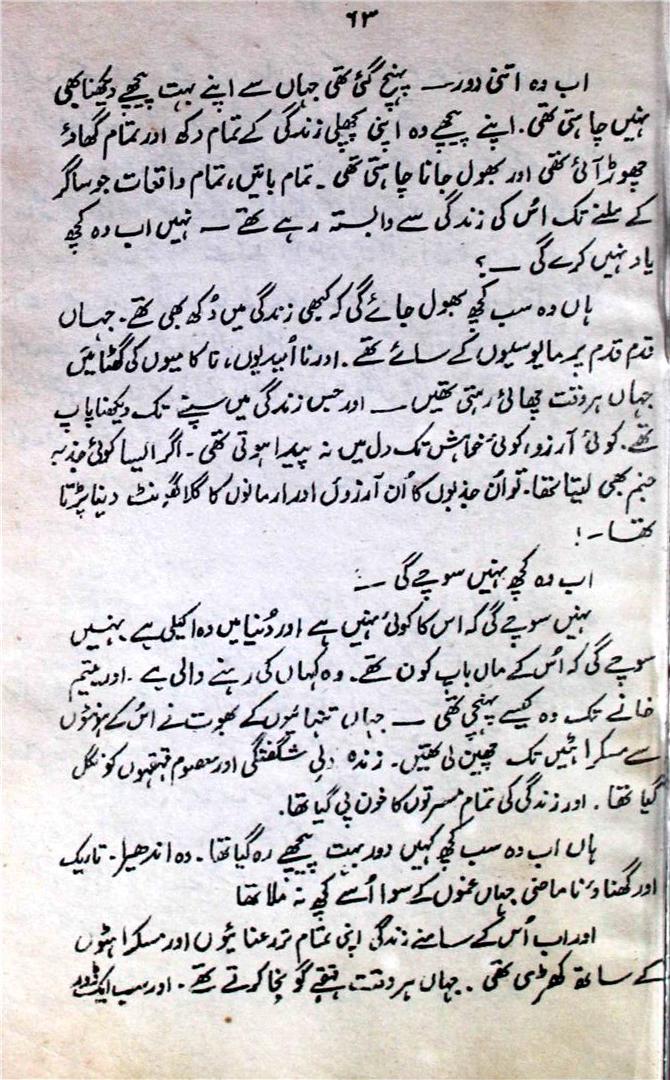 ۶۳
اب وہ اتنی دور— پہنچ گئی تھی جہاں سے اپنے بہت پیچھے دیکھنا بھی
نہیں چاہتی تھی۔ اپنے پیچھے وہ اپنی پچھلی زندگی کے تمام دکھ اور تمام گھاؤ
چھوڑ آئی تھی اور بھول جانا چاہتی تھی۔ تمام باتیں، تمام واقعات جو ساگر
کے ملنے تک اُس کی زندگی سے وابستہ رہے تھے — نہیں اب وہ کچھ
یاد نہیں کرے گی —؟
ہاں وہ سب کچھ بھول جائے گی کہ کبھی زندگی میں دُکھ بھی تھے۔ جہاں
قدم قدم پر مایوسیوں کے سائے تھے۔ اور نا اُمیدیوں، ناکامیوں کی گھٹائیں
جہاں ہر وقت چھائی رہتی تھیں — اور جس زندگی میں سپنے تک دیکھنا پاپ
تھے۔ کوئی آرزو، کوئی خواہش تک دل میں نہ پیدا ہوتی تھی۔ اگر ایسا کوئی جذبہ
جنم بھی لیتا تھا۔ تو اُن جذبوں کا اُن آرزوں اور ارمانوں کا گلا گھونٹ دینا پڑتا
تھا —!
اب وہ کچھ نہیں سوچے گی —:
نہیں سوچے گی کہ اس کا کوئی نہیں ہے اور دُنیا میں وہ اکیلی ہے نہیں
سوچے گی کہ اُس کے ماں باپ کون تھے۔ وہ کہاں کی رہنے والی ہے۔ اور یتیم
خانے تک وہ کیسے پہنچی تھی — جہاں تنہائیوں کے بھوت نے اُس کے ہونٹوں
سے مسکراہٹیں تک چھین لی تھیں۔ زندہ دلی شگفتگی اور معصوم قہقہوں کو نگل
گیا تھا۔ اور زندگی کی تمام مسرتوں کا خون پی گیا تھا۔
ہاں اب وہ سب کچھ کہیں دور بہت پیچھے رہ گیا تھا۔ وہ اندھیرا۔ تاریک
اور گھناؤنا ماضی جہاں غموں کے سوا اُسے کچھ نہ ملا تھا
اور اب اُس کے سامنے زندگی اپنی تمام تر رعنائیوں اور مسکراہٹوں
کے ساتھ کھڑی تھی۔ جہاں ہر وقت قہقہے گونجا کرتے تھے۔ اور سب ایک دوسرے